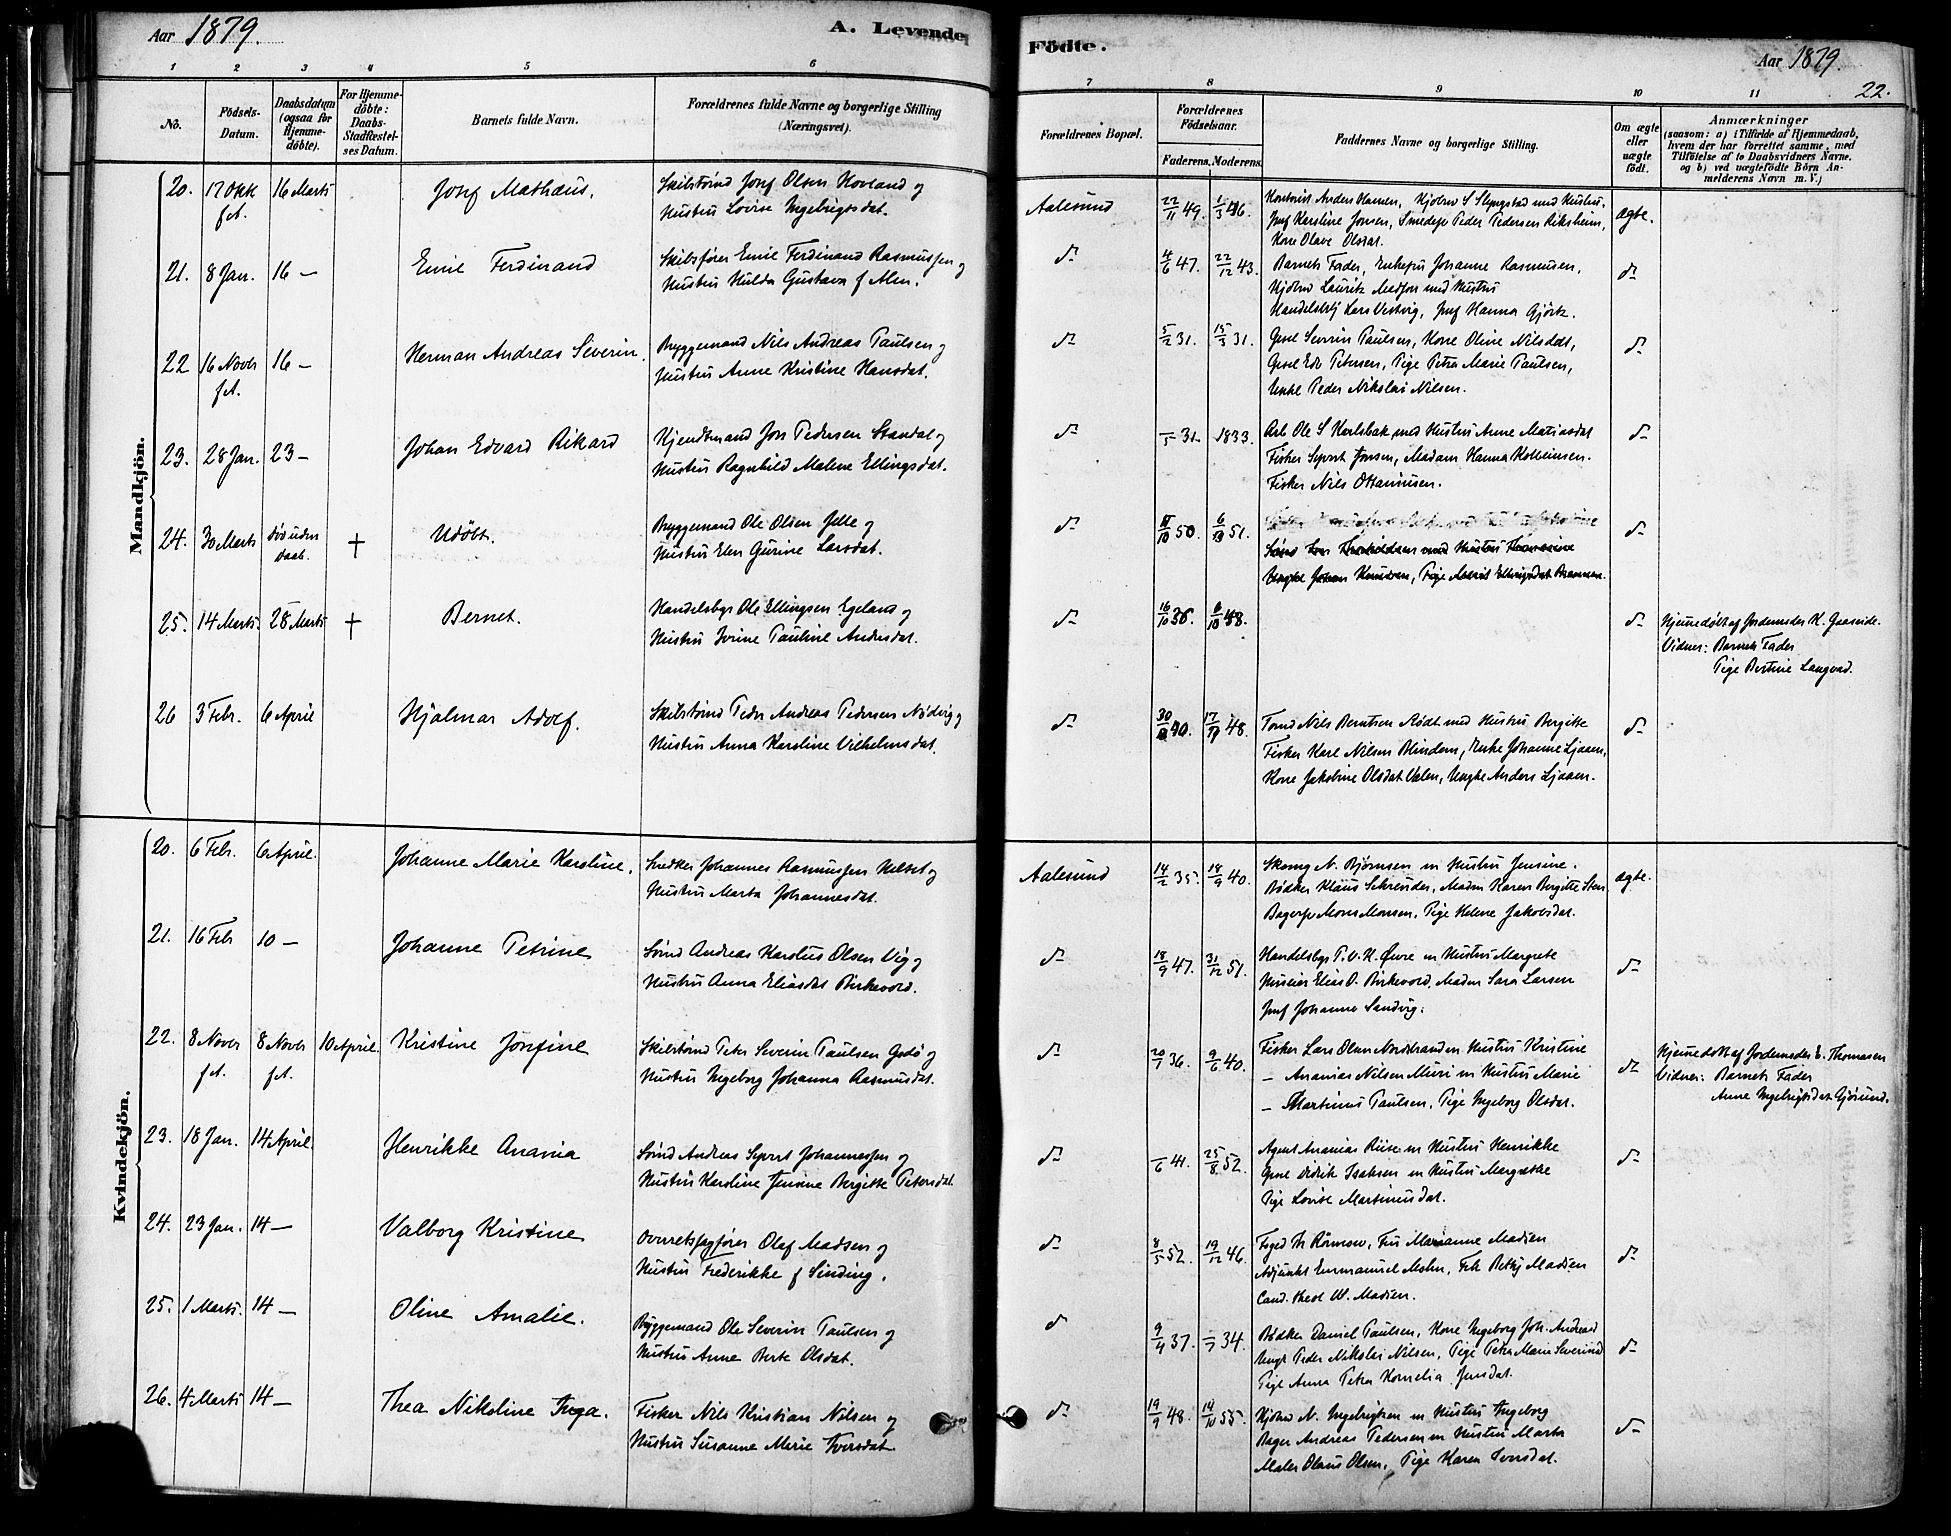 Aar 1879.
A. Levende
Födte.
Aar 1879.
22.
1 2 3 4 5 6 7 8 9 10 11
No.
Födsels-Datum.
Daabsdatum (ogsaa for Hjemme-döbte).
For Hjemme-döbte: Daabs-Stadfæstel-ses Datum.
Barnets fulde Navn.
Forældrenes fulde Navne og borgerlige Stilling (Næringsvei).
Forældrenes Bopæl.
Forældrenes Födselsaar.
Faderens. Moderens.
Faddernes Navne og borgerlige Stilling.
Om ægte eller uægte födt.
Anmærkninger
(saasom: a) i Tilfælde af Hjemmedaab, hvem der har forrettet samme, med Tilföielse af to Daabsvidners Navne. og b) ved uægtefödte Börn Anmelderens Navn m. V.)
Mandkjön.
20. 17 Oktr f.A. 16 Marts Josef Mathæus.
Skibstømd Josef Olsen Hovland og
Hustru Lovise Ingebrigtsdat.
Aalesund 22/11 49. 1/3 46.
Kontorist Anders Hansen,
Jmf Karoline Jonsen, Smedesv Peder Pedersen Riksheim,
Kone Olave Olsdat.
ægte.
21. 8 Jan. 16 — Emil Ferdinand
Skibsfører Emil Ferdinand Rasmussen og
Hustru Hulda Gustava f Alm.
d° 4/6 47. 22/12 43.
Barnets Fader, Enkefru Johanne Rasmussen,
Kjøbmd Lauritz Madsen med Hustru
Handelsbstj Lars Vestvig, Jmf Hanna Gjørtz.
d°
22 16 Novbr f.A. 16 — Herman Andreas Severin.
Bryggemand Nils Andreas Paulsen og
Hustru Anne Kristine Hansdat.
d° 5/2 31. 15/3 31.
Gsel Severin Paulsen, Kone Oline Nilsdat,
Gsel Edv Petersen, Pige Petra Marie Paulsen,
Unkl Peder Nikolai Nilsen.
d°
23. 28 Jan. 23 — Johan Edvard Rikard
Kjendtmand Jon Pedersen Standal og
Hustru Ragnhild Malene Ellingsdat.
d° —/5 31. 1833.
Arb Ole S Karlsbak med Hustru Anne Matiasdat
Fisker Syvert Jonsen, Madam Hanna Kolbeinsen.
Fisker Nils Ottarinsen.
d°
24. 30 Marts død uden daab. † Udøbt.
Bryggemand Ole Olsen Jelle og
Hustru Elen Gurine Larsdat.
d° 11/10 50. 6/10 51.
med Hustru Thomasine
Ungkl Johan Knudsen, Pige
d°
25. 14 Marts. 28 Marts † Bernet.
Handelsbgr Ole Ellingsen Egeland og
Hustru Ivrine Pauline Andersdat.
d° 16/10 36. 6/10 38.
d°
Hjemmedøbt af Jordemoder K. Gaaseide.
Vidner: Barnets Fader
Pige Bertine Langvad.
26 3 Febr. 6 April Hjalmar Adolf.
Skibstømd Peder Andreas Pedersen Nødvig og
Hustru Anna Karoline Vilhelmsdat.
d° 40. 48.
Tømd Nils Berntsen Rødt med Hustru Bergitte
Fisker Karl Nilsen Blindem, Enke Johanne Ljaaen,
Kone Jakobine Olsdat Valen, Ungkl Anders Ljaaen.
d°
Kvindekjön.
20. 6 Febr. 6 April. Johanne Marie Karoline.
Snedker Johannes Rasmussen Helset og
Hustru Marta Johannesdat.
Aalesund 14/2 35. 18/9 40.
Skomg N. Bjørnsen m Hustru Jensine.
Bødker Klaus Schreuder, Madm Karen Bergitte Sten
Bagersv Mons Monsen, Pige Helene Jakobsdat.
ægte.
21. 16 Febr 10 — Johanne Petrine
Sømd Andreas Karolus Olsen Vig og
Hustru Anna Eliasdat Birkevold.
d° 18/9 47. 31/12 51.
Handelsbgr P. V. K. Øvre m Hustru Margrete
Elias O. Birkevold, Madm Sara Larsen
Jmf Johanne Sandvig.
d°
22. 8 Novbr f.A. 8 Novbr f.A. 10 April. Kristine Jonfine
Skibstømd Peter Severin Paulsen Godø og
Hustru Ingeborg Johanna Rasmusdat.
d° 20/7 36. 9/6 40.
Fisker Lars Olsen Nordstrand m Hustru Kristine
— Ananias Nilsen Muri m Hustru Marie
— Martinus Paulsen, Pige Ingeborg Olsdat.
d°
Hjemmedøbt af Jordemoder E. Thomasen
Vidner: Barnets Fader
Anne Ingebrigtsdat Gjøsund.
23. 18 Jan. 14 April. Henrikke Anania
Sømd Andreas Syvert Johannessen og
Hustru Karoline Jensine Bergitte Petersdat.
d° —/6 41. 25/8 52.
Agent Ananias Riise m Hustru Henrikke
Gsel Didrik Isaksen m Hustru Margrethe
Pige Lovise Martinusdat.
d°
24. 23 Jan. 14 — Valborg Kristine
Overretssagfører Olaf Madsen og
Hustru Frederikke f Sinding.
d° 8/5 52. 19/12 46.
Foged Th Rømcke, Fru Marianne Madsen
Adjunkt Emmanuel Mohn, Frk Betty Madsen
Cand. theol W. Madsen.
d°
25. 1 Marts. 14 — Oline Amalie.
Bryggemand Ole Severin Paulsen og
Hustru Anne Berte Olsdat.
d° 9/4 37. —/7 34.
Bødker Daniel Paulsen, Kone Ingeborg Joh. Andreasd
Ungk Peder Nikolai Nilsen, Pige Petra Marie Severinsd
Pige Anna Petra Kornelia Jensdat.
d°
26. 4 Marts 14 — Thea Nikoline Inga.
Fisker Nils Kristian Nilsen og
Hustru Susanne Marie Iversdat.
d° 19/9 48. 14/10 55.
Kjøbmd N. Ingebrigtsen m Hustru Ingeborg
Bager Andreas Pedersen m Hustru Marta
Maler Olaus Olsen, Pige Karen Iversdat.
d°